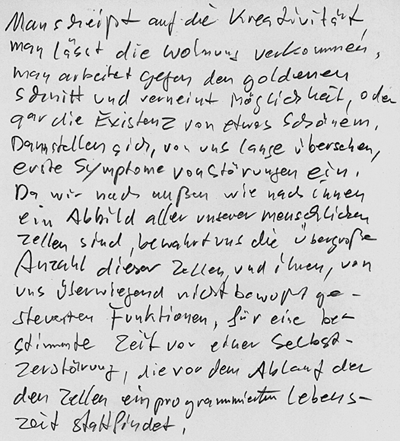 Man scheißt auf die Kreativität,
man lässt die Wohnung verkommen,
man arbeitet gegen den goldenen
Schnitt und verneint Möglichkeit, oder
gar die Existenz von etwas Schönem.
Dann stellen sich, von uns lange übersehen,
erste Symptome von Störungen ein.
Da wir nach außen wie nach innen
ein Abbild aller unserer menschlichen
Zellen sind, bewahrt uns die übergroße
Anzahl dieser Zellen, und ihren, von
uns überwiegend nicht bewußt ge-
steuerten Funktionen, für eine be-
stimmte Zeit vor einer Selbst-
zerstörung, die vor dem Ablauf der
den Zellen einprogrammierten Lebens-
zeit stattfindet.